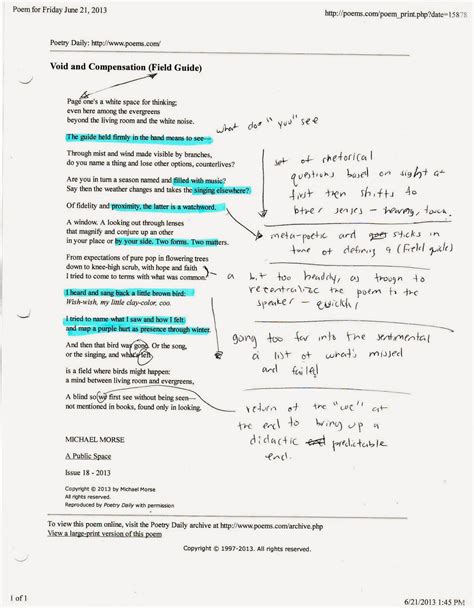 Poem for Friday June 21, 2013
http://poems.com/poem_print.php?date=15878
Poetry Daily: http://www.poems.com/
Void and Compensation (Field Guide)
Page one's a white space for thinking;
even here among the evergreens
beyond the living room and the white noise.
what does "you" see
The guide held firmly in the hand means to see—
Through mist and wind made visible by branches,
do you name a thing and lose other options, counterlives?
set of rhetorical
questions based on sight at
first then shifts to
other senses – hearing, touch.
Are you in a season named and filled with music?
Say then the weather changes and takes the singing elsewhere?
Of fidelity and proximity, the latter is a watchword.
meta-poetic and sticks in
tone of defining a (Field guide)
A window. A looking out through lenses
that magnify and conjure up an other
in your place or by your side. Two forms. Two matters.
From expectations of pure pop in flowering trees
down to knee-high scrub, with hope and faith
I tried to come to terms with what was common.
a bit too heady, as though to
recentralize the poem to the
speaker – quickly
I heard and sang back a little brown bird:
Wish-wish, my little clay-color, coo.
I tried to name what I saw and how I felt
and map a purple hurt as presence through winter.
going too far into the sentimental
a list of what's missed
and failed
And then that bird was gone. Or the song,
or the singing, and what's left
is a field where birds might happen:
a mind between living room and evergreens,
A blind so we first see without being seen—
not mentioned in books, found only in looking.
return of the "we" at
the end to bring up a
didactic predictable
end.
MICHAEL MORSE
A Public Space
Issue 18 - 2013
Copyright © 2013 by Michael Morse
All rights reserved.
Reproduced by Poetry Daily with permission
To view this poem online, visit the Poetry Daily archive at http://www.poems.com/archive.php
View a large-print version of this poem
Copyright © 1997-2013. All rights reserved.
1 of 1
6/21/2013 1:45 PM